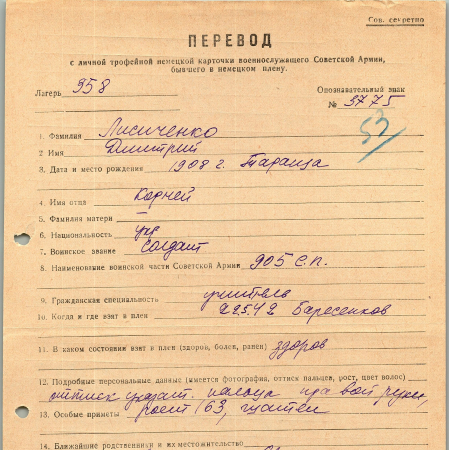 Сов. секретно
ПЕРЕВОД
с личной трофейной немецкой карточки военнослужащего Советской Армии,
бывшего в немецком плену.
Лагерь 358
Опознавательный знак
№ 3775
53
1. Фамилия Лисиченко
2 Имя Дмитрий
3. Дата и место рождения 1908 г. Тараща
4. Имя отца Корней
5. Фамилия матери —
6. Национальность укр
7. Воинское звание солдат
8. Наименование воинской части Советской Армии 905 с.п.
9. Гражданская специальность учитель
10. Когда и где взят в плен 22.5.42 Баресенков
11. В каком состоянии взят в плен (здоров, болен, ранен) здоров
12. Подробные персональные данные (имеется фотография, оттиск пальцев, рост, цвет волос)
оттиск указат. пальца правой руки,
13. Особые приметы рост 163, шатен
14. Ближайшие родственники и их местожительство